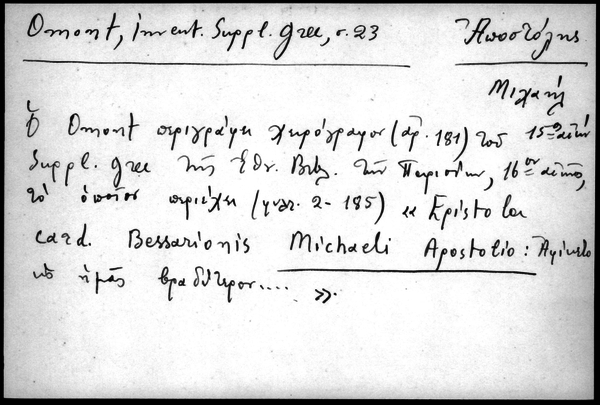 Omont, invent. Suppl. grec, σ. 23
Ἀποστόλης
Μιχαήλ
Ὁ Omont περιγράφει χειρόγραφον (ἀρ. 181) τοῦ 15ου αἰῶν
Suppl. grec τῆς Ἐθν. Βιβλ. τῶν Παρισίων, 16ου αἰῶνος,
τὸ ὁποῖον περιέχει (φυλλ. 2-185) «Epistola
card. Bessarionis Michaeli Apostolio: Ἀφίκετο
ὡς ἡμᾶς βραδύτερον.... ».